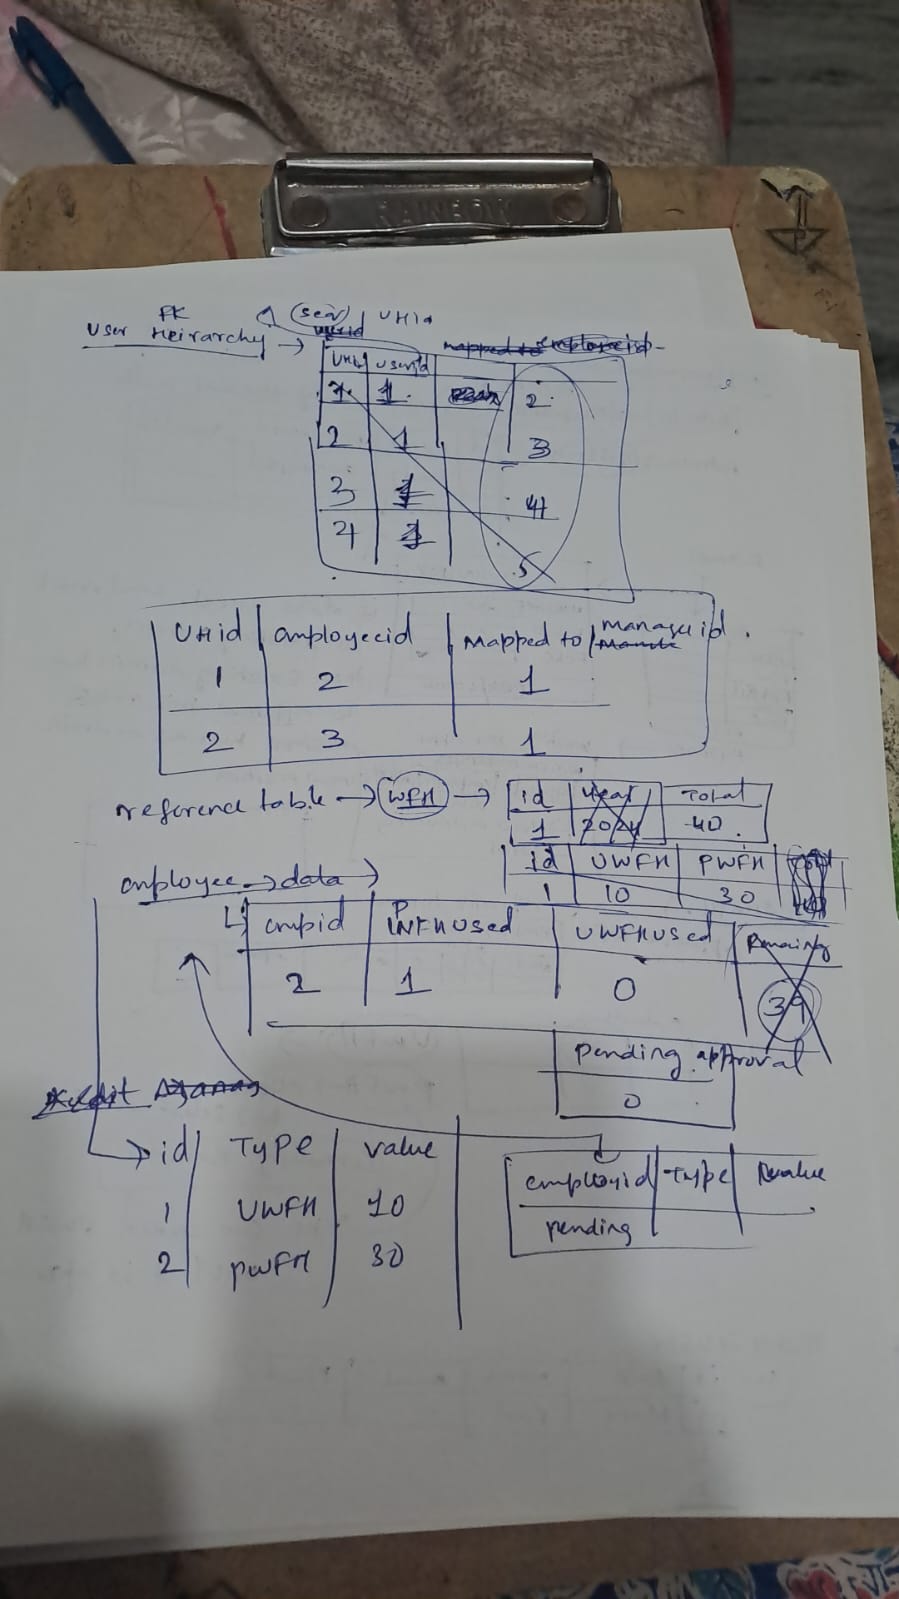 RAINBOW
PK (seq) UHid
User Heirarchy → userid mapped to employeeid
UHid userid
1 1 2
2 1 3
3 1 4
4 1 5
UHid employeeid Mapped to / manager id.
1 2 1
2 3 1
reference table → WFH → id year Total
1 2024 40
id UWFH PWFH
1 10 30
employee → data →
empid PWFHUsed UWFHUsed Remaing
2 1 0 39
pending approval
0
id Type value
employid Type value
1 UWFH 10
pending
2 PWFH 30